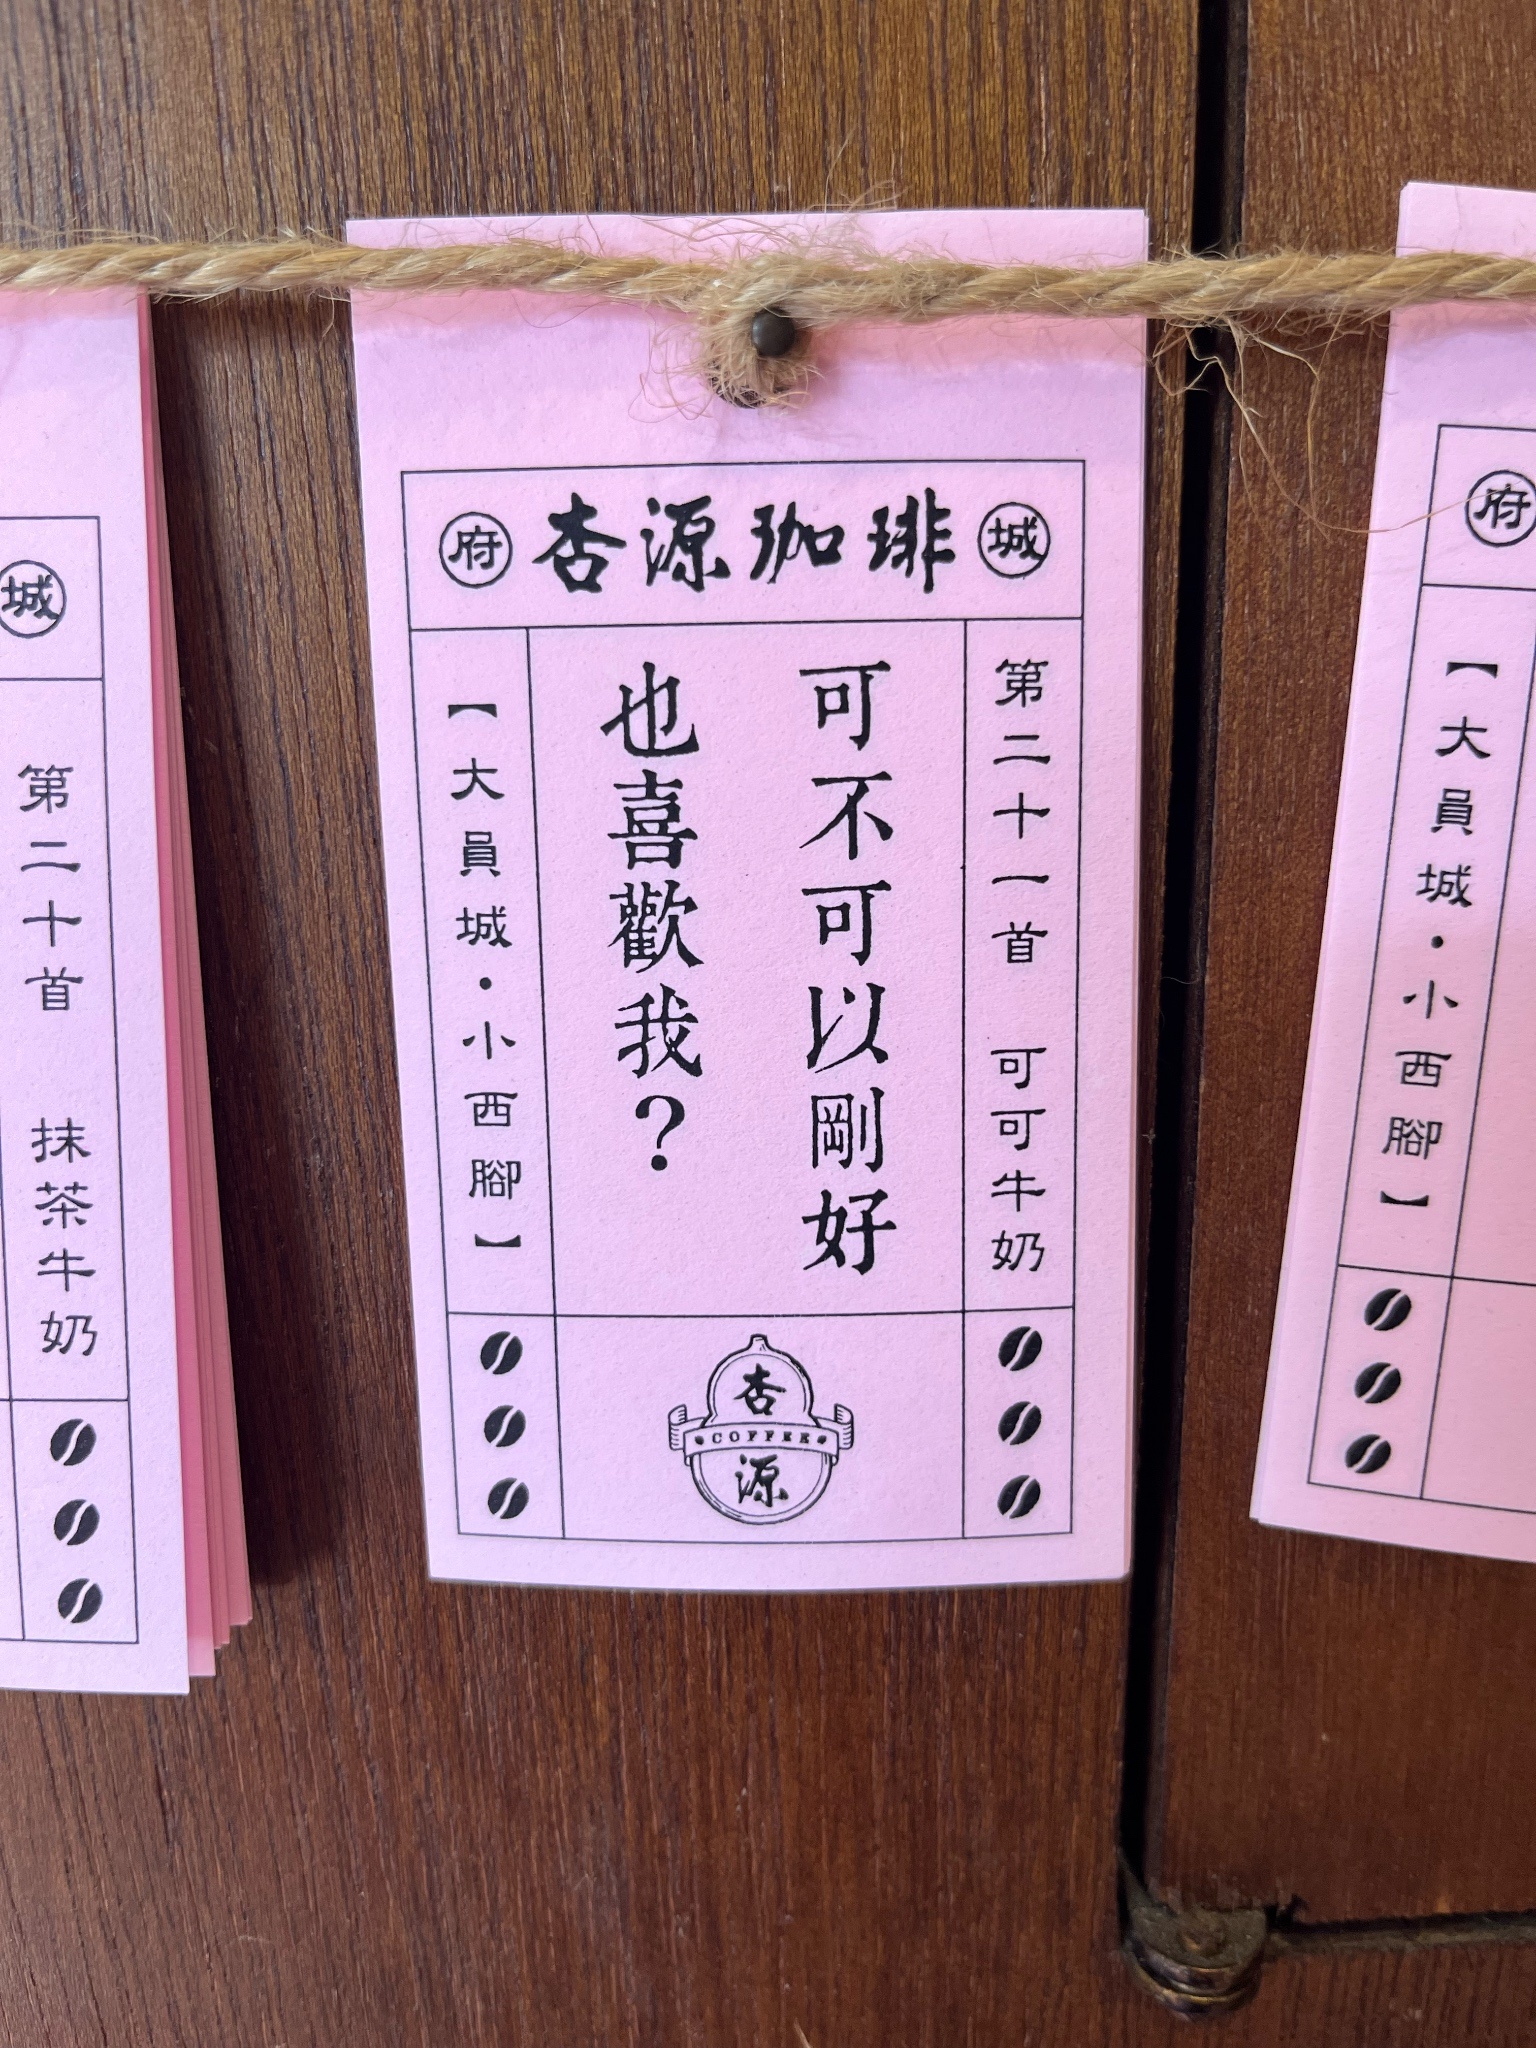 府 杏源珈琲 城
第二十一首 可可牛奶
可不可以剛好
也喜歡我？
【大員城・小西腳】
杏
COFFEE
源
城
第二十首 抹茶牛奶
府
【大員城・小西腳】